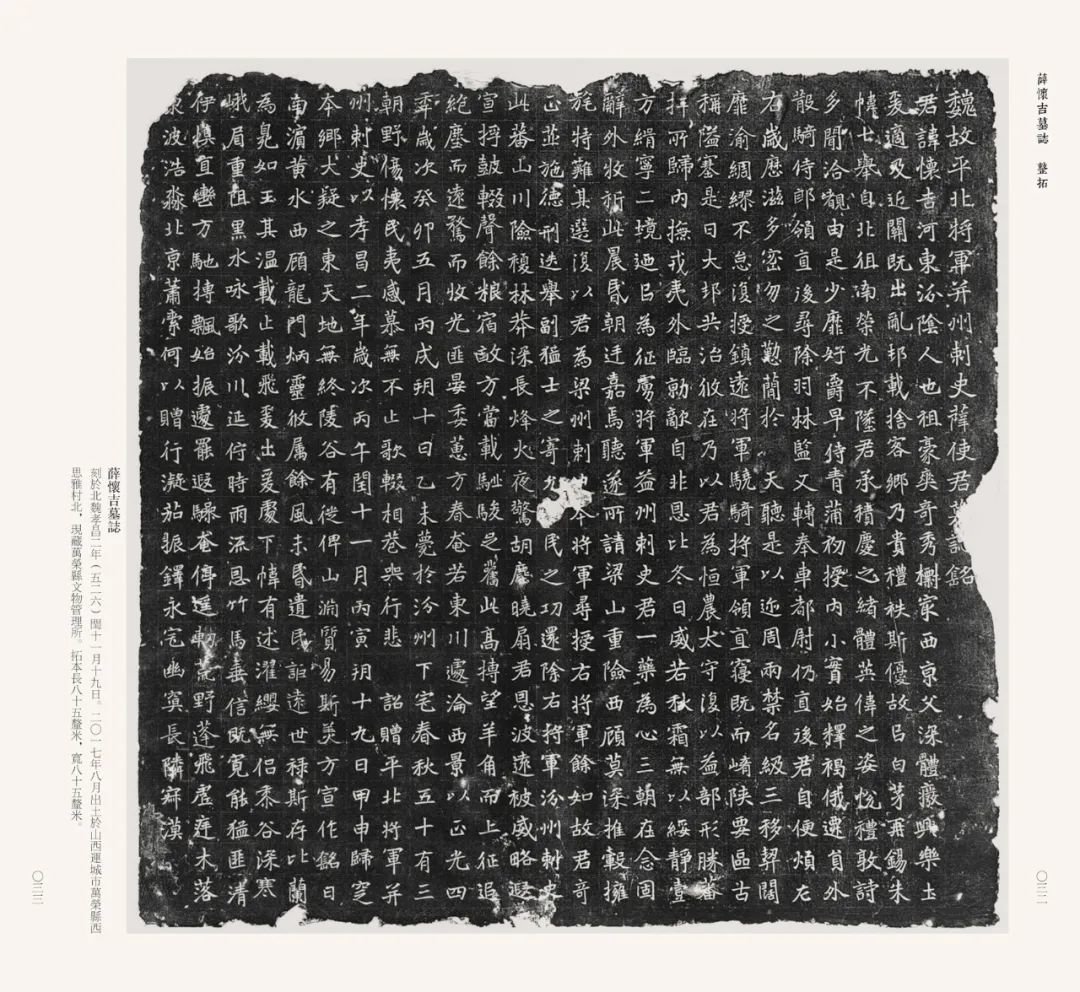 薛懷吉墓誌 整拓
〇三二
魏故平北將軍并州刺史薛使君墓誌銘
君諱懷吉河東汾陰人也祖豪爽奇秀擲家西京父深體廢興樂土
爰適及近關既出亂邦載捨客鄉乃貴禮秩斯優故吕白茅再錫朱
幃七舉自北徂南榮光不墜君承積慶之緒體英偉之姿悅禮敦詩
多聞洽覩由是少靡好爵早侍青蒲初授內小實始釋褐俄遷員外
散騎侍郎領直後尋除羽林監又轉奉車都尉仍直後君自便煩左
右歲曆滋多密勿之懃簡於 天聽是以近周兩禁名級三移契闊
靡渝綢繆不怠復授鎮遠將軍驍騎將軍領直寢既而崤陝要區古
稱隘塞是日大邦共治攸在乃以君為恒農太守復以益部形勝蕃
捍所歸內撫戎夷外臨勍敵自非恩比冬日威若秋霜無以綏靜壹
方緝寧二境迺吕為征虜將軍益州刺史君一藥為心三朝在念固
辭外收祈此晨昏朝廷嘉焉聽遂所請梁山重險西顧莫深推轂擁
旄特難其選復以君為梁州刺 本將軍尋授右將軍餘如故君奇
正並施德刑迭舉副猛士之寄 民之功還除右將軍汾州刺史
此蕃山川險複林莽深長烽火夜驚胡塵曉扇君恩波遠被威略遐
宣捋鼓輟聲餘粮宿畝方當載馳駿足騖此高搏望羊角而上征追
絶塵而遠騖而收光匪晏委蕙方春奄若東川遽淪西景以正光四
年歲次癸卯五月丙戌朔十日乙未薨於汾州下宅春秋五十有三
朝野傷懷民夷感慕無不止歌輟相巷哭行悲 詔贈平北將軍并
州刺史以孝昌二年歲次丙午閏十一月丙寅朔十九日甲申歸窆
本鄉大疑之東天地無終陵谷有徙俾山淵貿易斯美方宣作銘曰
南濱黃水西顧龍門炳靈攸属餘風未昏遺民詎遠世祿斯存比蘭
為晃如玉其温載止載飛爰出爰處下幃有述濯纓無侣黍谷深寒
峨眉重阻黑水咏歌汾川延佇時雨流恩竹馬垂信既寬能猛匪清
伊慎直轡方馳摶飄始振遽罷遐驂奄停遥軔荒野蓬飛虛庭木落
波浩淼北京蕭索何以贈行凝笳振鐸永宅幽冥長隣寂漠
薛懷吉墓誌
刻於北魏孝昌二年（五二六）閏十一月十九日。二〇一七年八月出土於山西運城市萬榮縣西
思雅村北，現藏萬榮縣文物管理所。拓本長八十五釐米，寬八十五釐米。
〇三三